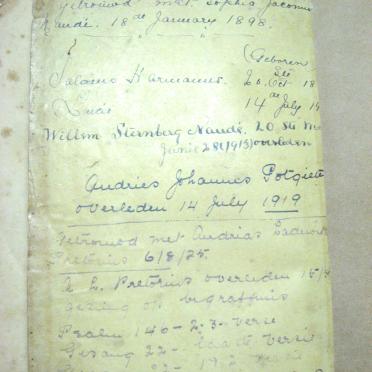 Getrouwd met Sophia Jacomina
Naudé. 18de January 1898.
(Geboren
Salomo Hermanus. 26ste Oct 18
14de July 19
Willem Sternberg Naudé. 20ste M
Junie 28 (1915) overleden
Andries Johannes Potgiete
overleden 14 July 1919
Getrouwd met Andrias
Pretorius 6/8/25.
A. L. Pretorius overleden 15/
gesing op begraffnis
Psalm 140 - 2-3- verse
Gesang 22 - laaste verse